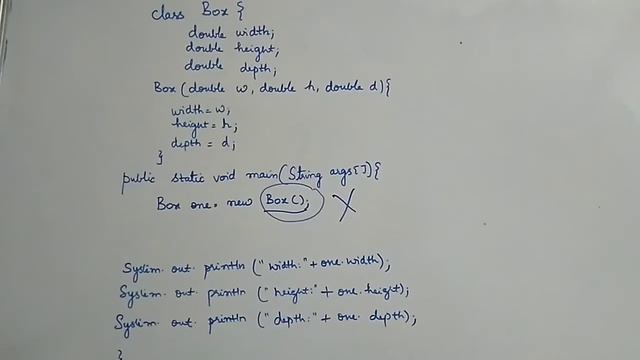 class Box {
double width;
double height;
double depth;
Box (double w, double h, double d) {
width = w;
height = h;
depth = d;
}
public static void main(String args[]) {
Box one = new Box();
System.out.println ("width:" + one.width);
System.out.println ("height:" + one.height);
System.out.println ("depth:" + one.depth);
}